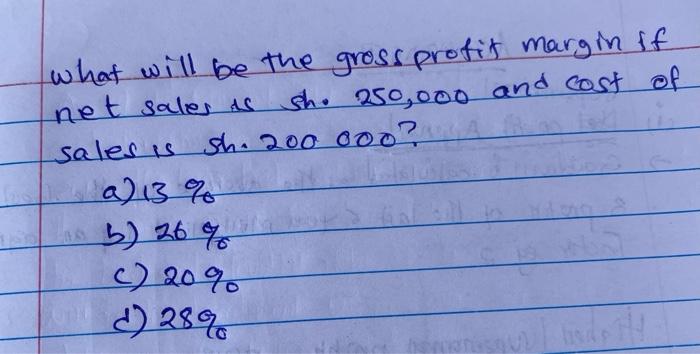 what will be the gross profit margin if
net sales is sh. 250,000 and cost of
sales is sh. 200 000?
a) 13 %
b) 26 %
c) 20 %
d) 28 %